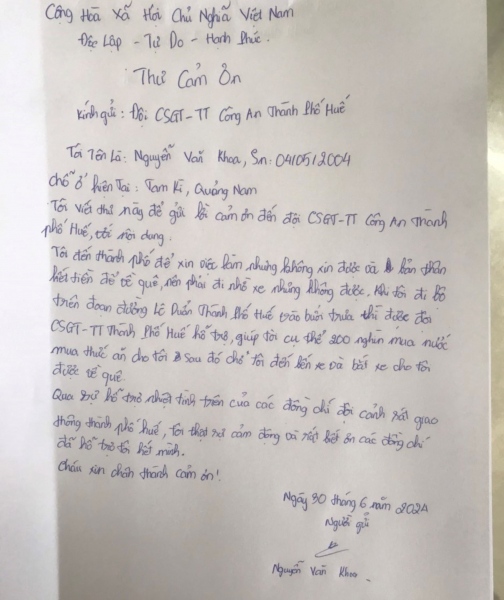 Cộng Hoà Xã Hội Chủ Nghĩa Việt Nam
Độc Lập - Tự Do - Hạnh Phúc.
Thư Cảm Ơn
Kính gửi: Đội CSGT-TT Công An Thành Phố Huế
Tôi Tên Là: Nguyễn Văn Khoa, Sn: 04/05/2004
Chỗ ở hiện Tại: Tam Kì, Quảng Nam
Tôi viết thư này để gửi lời cảm ơn đến đội CSGT-TT Công An Thành
phố Huế, với nội dung.
Tôi đến thành phố để xin việc làm nhưng không xin được và bản thân
hết tiền để về quê, nên phải đi nhờ xe nhưng không được, khi tôi đi bộ
trên đoạn đường Lê Duẩn Thành Phố Huế vào buổi trưa thì được đội
CSGT-TT Thành Phố Huế hỗ trợ, giúp tôi cụ thể 200 nghìn mua nước
mua thức ăn cho tôi sau đó chở tôi đến bến xe và bắt xe cho tôi
được về quê
Qua sự hỗ trợ nhiệt tình trên của các đồng chí đội cảnh sát giao
thông thành phố huế, Tôi thật sự cảm động và rất biết ơn các đồng chí
đã hỗ trợ tôi hết mình.
Cháu xin chân thành cảm ơn!
Ngày 30 tháng 6 năm 2024
Người gửi
Nguyễn Văn Khoa